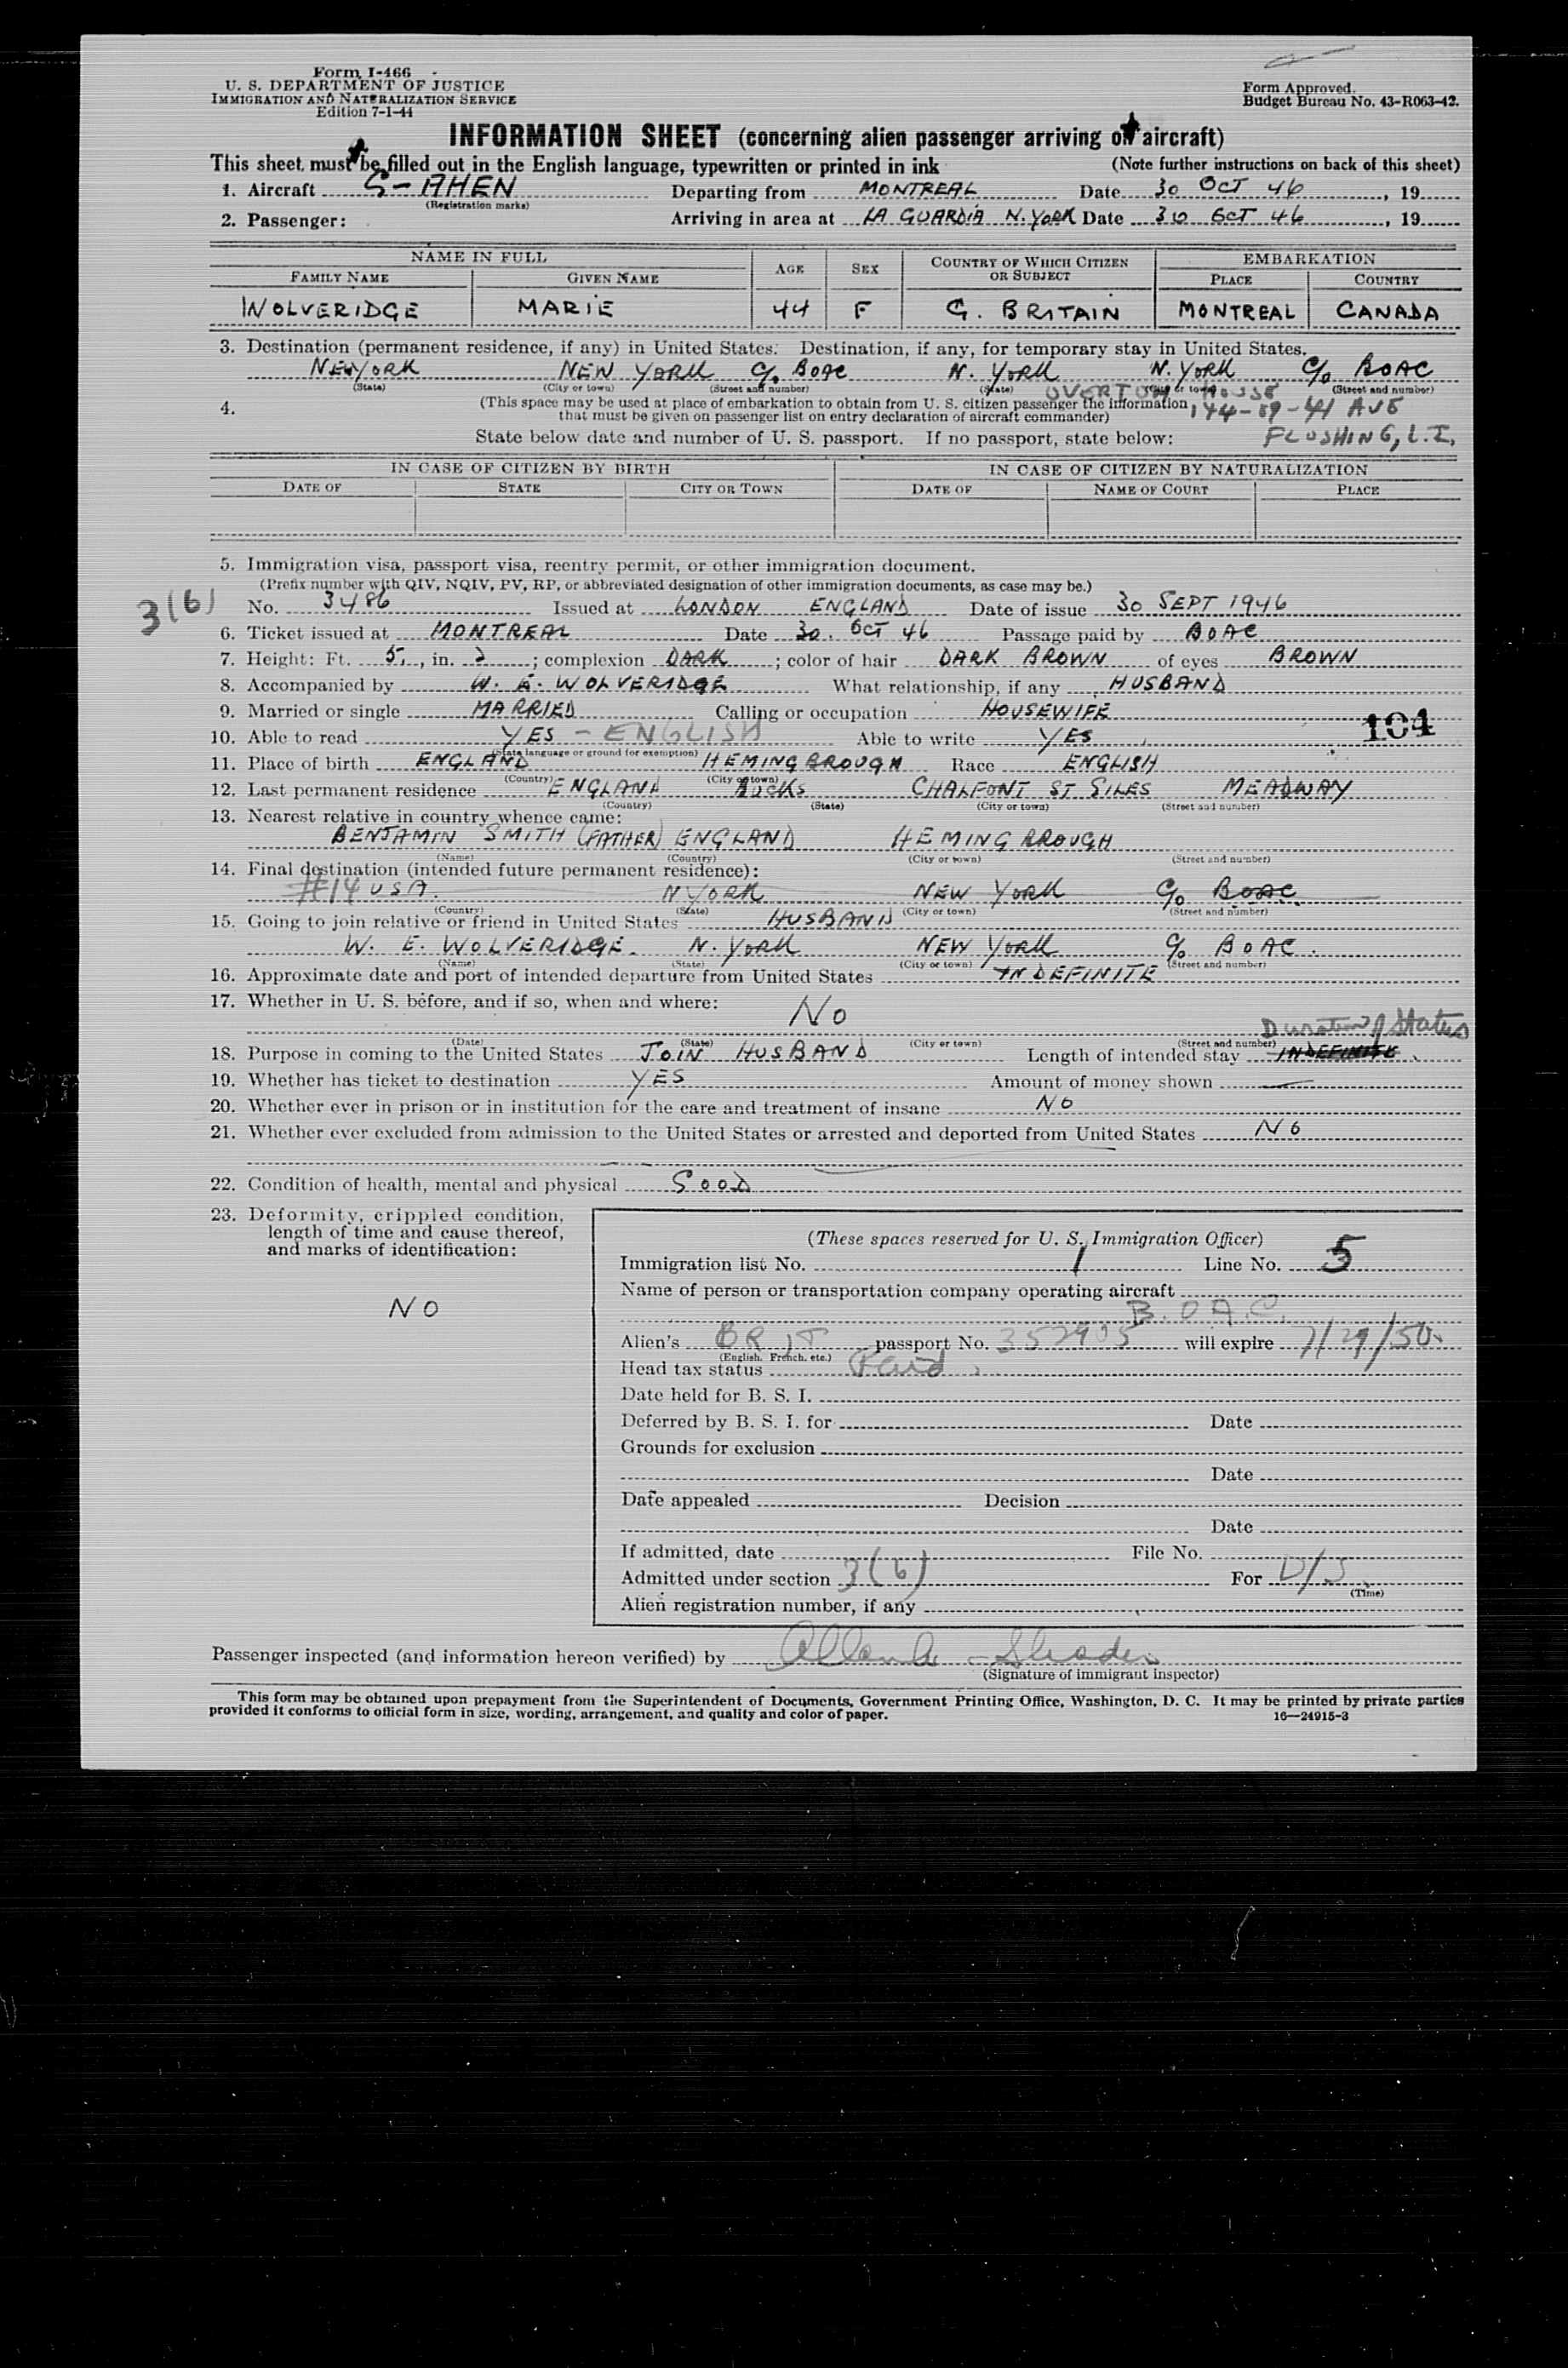 Form I-466
U. S. DEPARTMENT OF JUSTICE
IMMIGRATION AND NATURALIZATION SERVICE
Edition 7-1-44
Form Approved.
Budget Bureau No. 43-R063-42.
INFORMATION SHEET (concerning alien passenger arriving on aircraft)
This sheet must be filled out in the English language, typewritten or printed in ink (Note further instructions on back of this sheet)
1. Aircraft G-AHEN Departing from MONTREAL Date 30 OCT 46, 19
(Registration marks)
2. Passenger: Arriving in area at LA GUARDIA N. YORK Date 30 OCT 46, 19
NAME IN FULL AGE SEX COUNTRY OF WHICH CITIZEN OR SUBJECT EMBARKATION
FAMILY NAME GIVEN NAME PLACE COUNTRY
WOLVERIDGE MARIE 44 F G. BRITAIN MONTREAL CANADA
3. Destination (permanent residence, if any) in United States. Destination, if any, for temporary stay in United States.
NEWYORK NEW YORK C/o BOAC N. YORK N. YORK C/o BOAC
(State) (City or town) (Street and number) (State) (City or town) (Street and number)
HOUSE
4. (This space may be used at place of embarkation to obtain from U. S. citizen passenger the information
that must be given on passenger list on entry declaration of aircraft commander)
41 AVE
State below date and number of U. S. passport. If no passport, state below: FLUSHING, L.I.
IN CASE OF CITIZEN BY BIRTH IN CASE OF CITIZEN BY NATURALIZATION
DATE OF STATE CITY OR TOWN DATE OF NAME OF COURT PLACE
5. Immigration visa, passport visa, reentry permit, or other immigration document.
(Prefix number with QIV, NQIV, PV, RP, or abbreviated designation of other immigration documents, as case may be.)
3(6)
No. 3486 Issued at LONDON ENGLAND Date of issue 30 SEPT 1946
6. Ticket issued at MONTREAL Date 30. OCT 46 Passage paid by BOAC
7. Height: Ft. 5, in. 2; complexion DARK; color of hair DARK BROWN of eyes BROWN
8. Accompanied by W. E. WOLVERIDGE What relationship, if any HUSBAND
9. Married or single MARRIED Calling or occupation HOUSEWIFE
104
10. Able to read YES - ENGLISH Able to write YES
(State language or ground for exemption)
11. Place of birth ENGLAND HEMINGBROUGH Race ENGLISH
(Country) (City or town)
12. Last permanent residence ENGLAND BUCKS CHALFONT ST GILES MEADWAY
(Country) (State) (City or town) (Street and number)
13. Nearest relative in country whence came:
BENJAMIN SMITH (FATHER) ENGLAND HEMINGBROUGH
(Name) (Country) (City or town) (Street and number)
14. Final destination (intended future permanent residence):
#14 USA. N YORK NEW YORK C/o BOAC
(Country) (State) (City or town) (Street and number)
15. Going to join relative or friend in United States HUSBAND
W. E. WOLVERIDGE. N. YORK NEW YORK C/o BOAC.
(Name) (State) (City or town) (Street and number)
16. Approximate date and port of intended departure from United States INDEFINITE
17. Whether in U. S. before, and if so, when and where: NO
Duration of Status
(Date) (State) (City or town) (Street and number)
18. Purpose in coming to the United States JOIN HUSBAND Length of intended stay INDEFINITE
19. Whether has ticket to destination YES Amount of money shown —
20. Whether ever in prison or in institution for the care and treatment of insane NO
21. Whether ever excluded from admission to the United States or arrested and deported from United States NO
22. Condition of health, mental and physical GOOD
23. Deformity, crippled condition,
length of time and cause thereof,
and marks of identification:
NO
(These spaces reserved for U. S. Immigration Officer)
Immigration list No. 1 Line No. 5
Name of person or transportation company operating aircraft
B.O.A.C.
Alien's BRIT passport No. 352905 will expire 7/29/50
(English, French, etc.)
Head tax status Paid
Date held for B. S. I.
Deferred by B. S. I. for Date
Grounds for exclusion
Date
Date appealed Decision
Date
If admitted, date File No.
Admitted under section 3(6) For D/S
(Time)
Alien registration number, if any
Passenger inspected (and information hereon verified) by
(Signature of immigrant inspector)
This form may be obtained upon prepayment from the Superintendent of Documents, Government Printing Office, Washington, D. C. It may be printed by private parties
provided it conforms to official form in size, wording, arrangement, and quality and color of paper. 16—24915-3